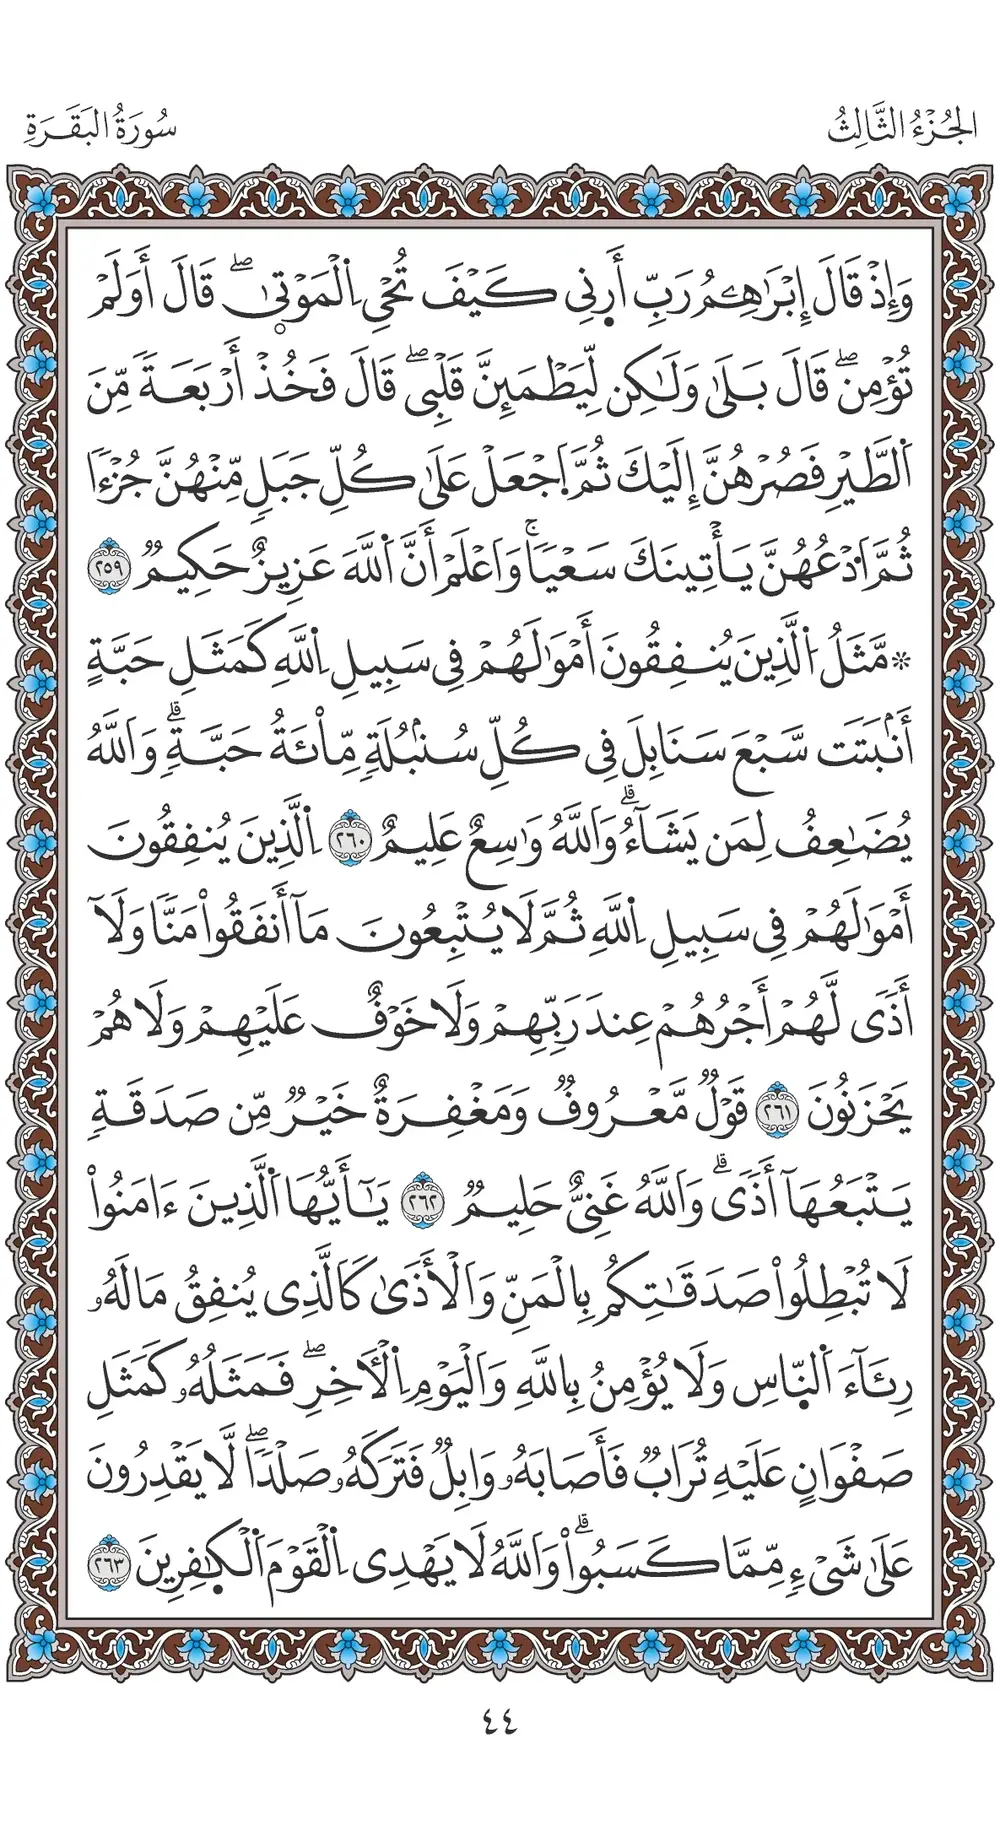 الجُزْءُ الثَّالِثُ
سُورَةُ البَقَرَةِ
وَإِذْ قَالَ إِبْرَٰهِـۧمُ رَبِّ أَرِنِى كَيْفَ تُحْىِ اِ۬لْمَوْتٜىٰۖ قَالَ أَوَلَمْ
تُؤْمِنۖ قَالَ بَلَىٰ وَلَٰكِن لِّيَطْمَئِنَّ قَلْبِىۖ قَالَ فَخُذْ أَرْبَعَةٗ مِّنَ
اَ۬لطَّيْرِ فَصُرْهُنَّ إِلَيْكَ ثُمَّ اَ۪جْعَلْ عَلَىٰ كُلِّ جَبَلٖ مِّنْهُنَّ جُزْءٗا
ثُمَّ اَ۟دْعُهُنَّ يَأْتِينَكَ سَعْيٗاۚ وَاعْلَمْ أَنَّ اَ۬للَّهَ عَزِيزٌ حَكِيمٞ ٢٥٩
۞ مَّثَلُ اُ۬لَّذِينَ يُنفِقُونَ أَمْوَٰلَهُمْ فِى سَبِيلِ اِ۬للَّهِ كَمَثَلِ حَبَّةٍ
أَنۢبَتَت سَّبْعَ سَنَابِلَ فِى كُلِّ سُنۢبُلَةٖ مِّاْئَةُ حَبَّةٖۗ وَاللَّهُ
يُضَٰعِفُ لِمَن يَشَآءُۗ وَاللَّهُ وَٰسِعٌ عَلِيمٌ ٢٦٠ اِ۬لَّذِينَ يُنفِقُونَ
أَمْوَٰلَهُمْ فِى سَبِيلِ اِ۬للَّهِ ثُمَّ لَا يُتْبِعُونَ مَآ أَنفَقُواْ مَنّٗا وَلَآ
أَذٗى لَّهُمْ أَجْرُهُمْ عِندَ رَبِّهِمْ وَلَا خَوْفٌ عَلَيْهِمْ وَلَا هُمْ
يَحْزَنُونَ ٢٦١ قَوْلٞ مَّعْرُوفٞ وَمَغْفِرَةٌ خَيْرٞ مِّن صَدَقَةٖ
يَتْبَعُهَآ أَذٗىۗ وَاللَّهُ غَنِىٌّ حَلِيمٞ ٢٦٢ يَٰٓأَيُّهَا اَ۬لَّذِينَ ءَامَنُواْ
لَا تُبْطِلُواْ صَدَقَٰتِكُم بِالْمَنِّ وَالْأَذَىٰ كَالَّذِى يُنفِقُ مَالَهُۥ
رِئَآءَ اَ۬لنّٜاسِ وَلَا يُؤْمِنُ بِاللَّهِ وَالْيَوْمِ اِ۬لْأٓخِرِۖ فَمَثَلُهُۥ كَمَثَلِ
صَفْوَانٍ عَلَيْهِ تُرَابٞ فَأَصَابَهُۥ وَابِلٞ فَتَرَكَهُۥ صَلْدٗاۖ لَّا يَقْدِرُونَ
عَلَىٰ شَىْءٖ مِّمَّا كَسَبُواْۗ وَاللَّهُ لَا يَهْدِى اِ۬لْقَوْمَ اَ۬لْكٰٜفِرِينَ ٢٦٣
٤٤